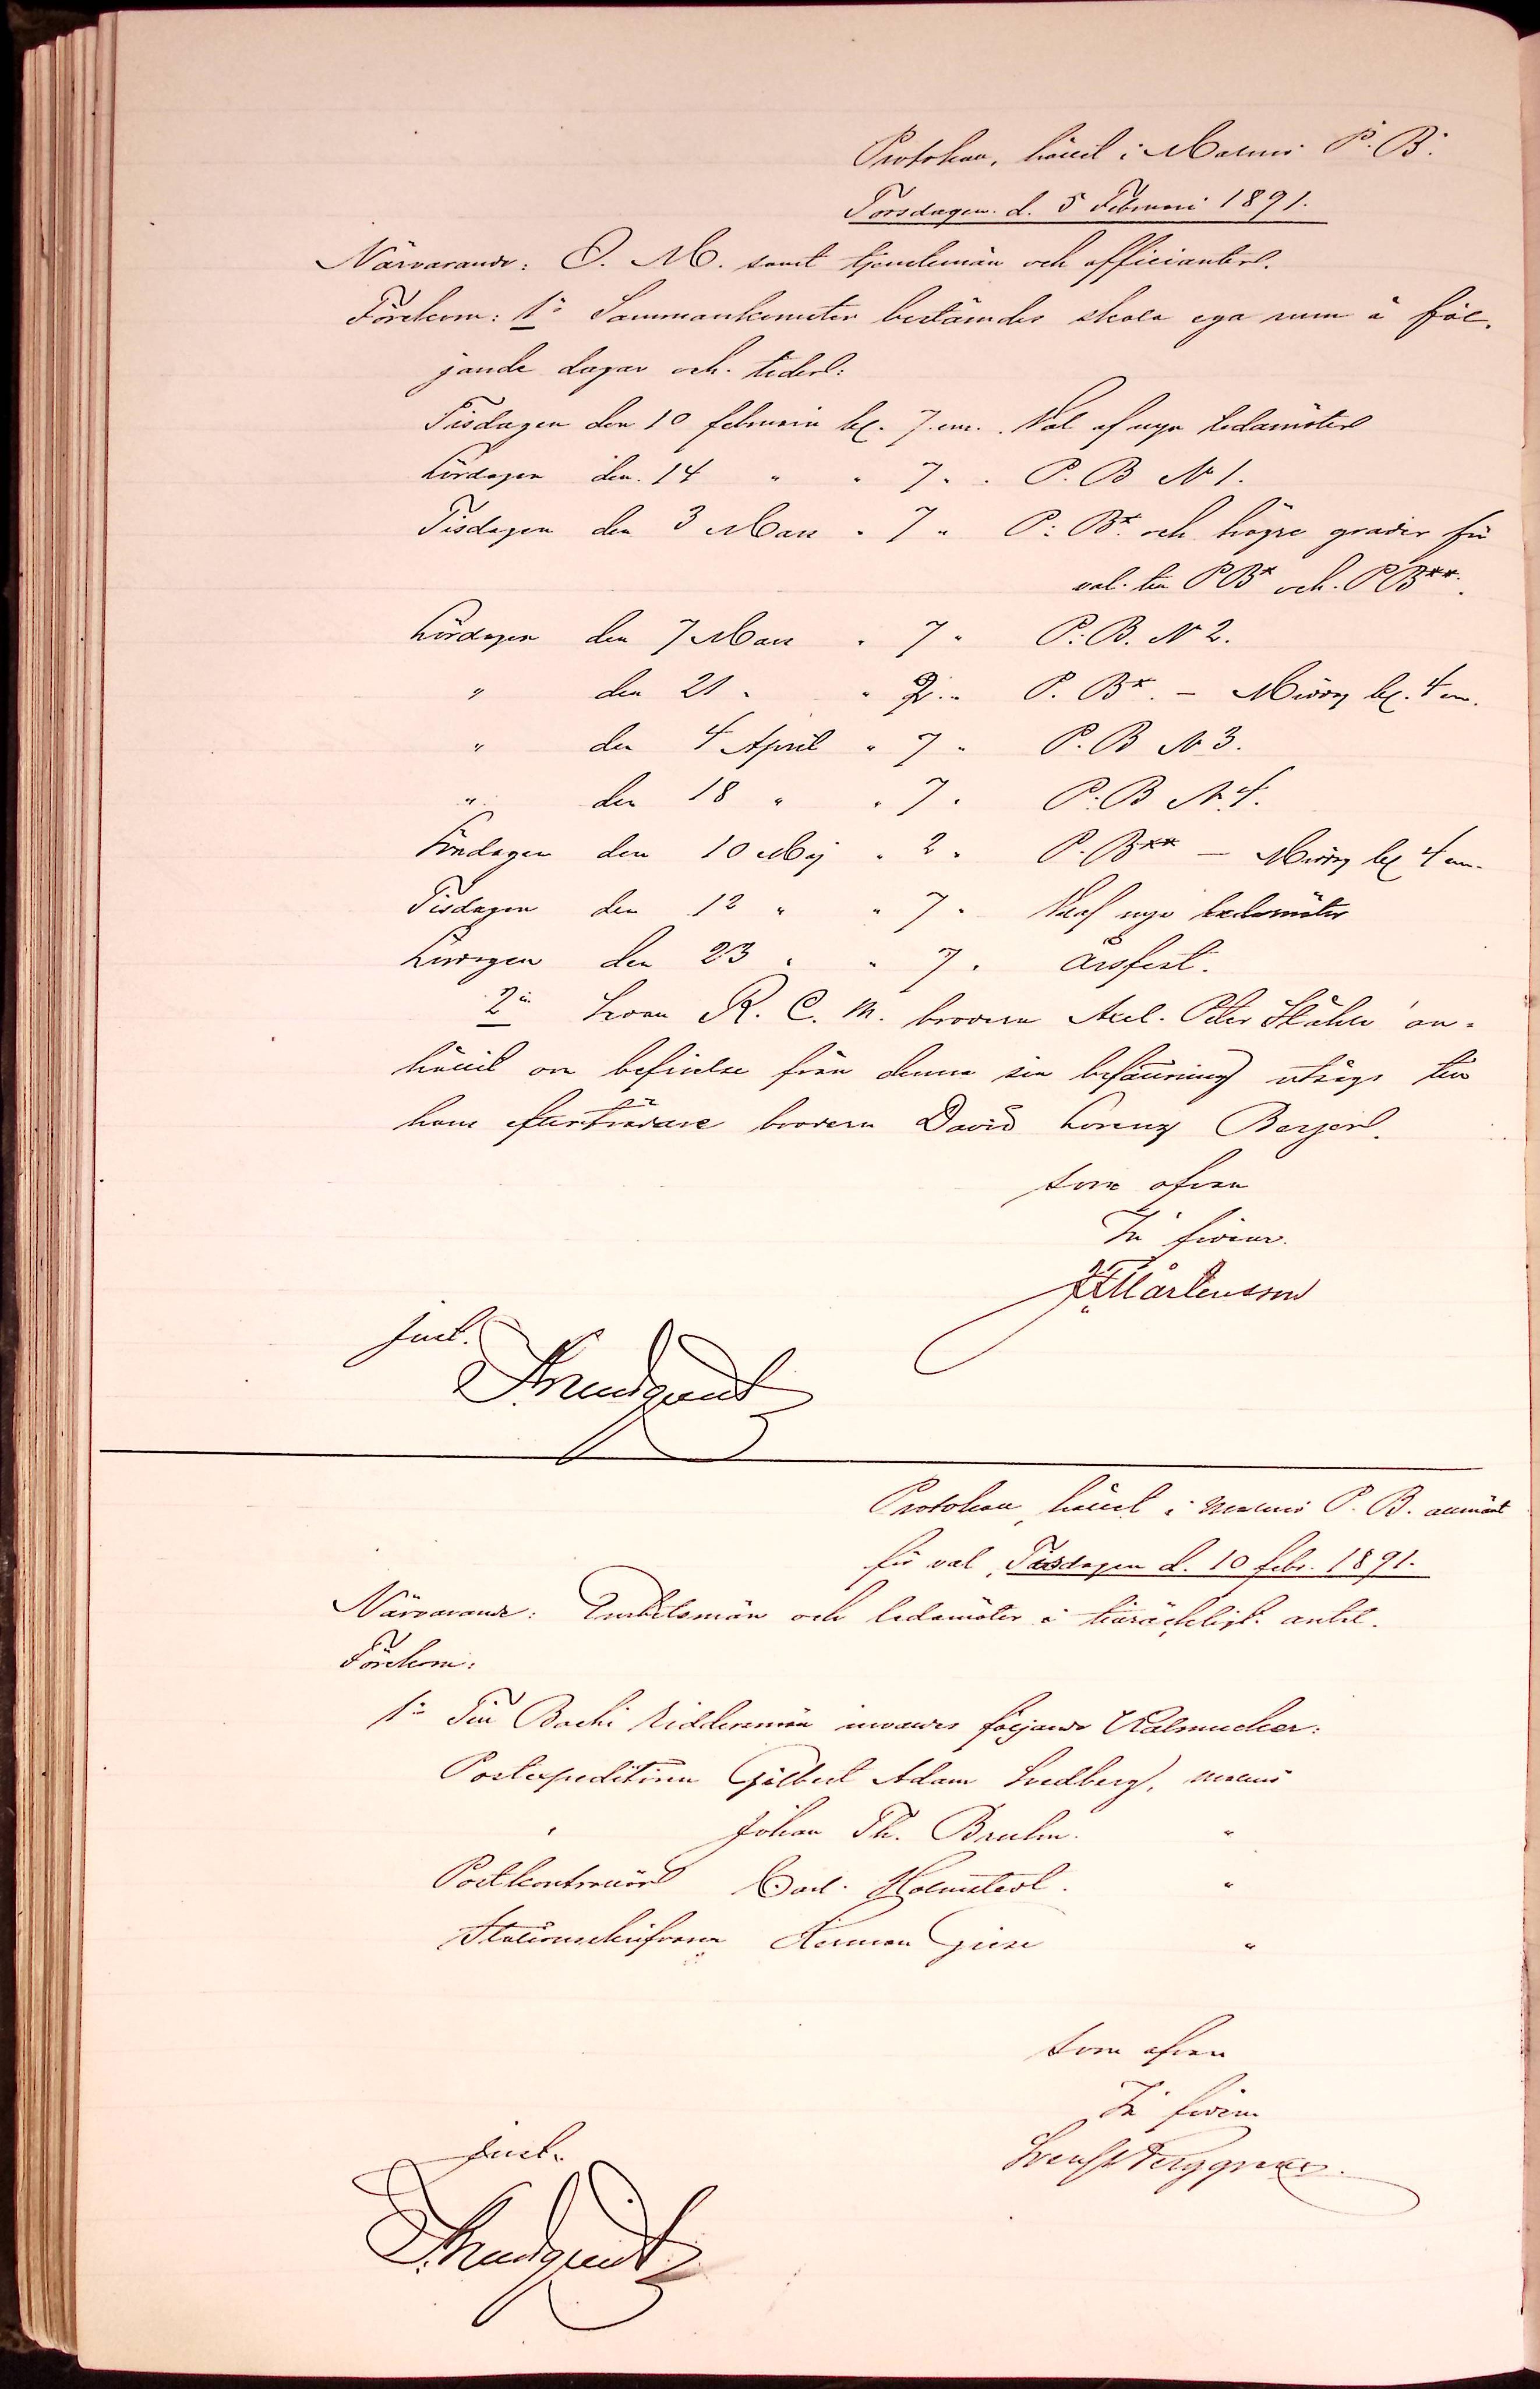 Protokoll, hållit i Malmö P. B.
Torsdagen d. 5 Februari 1891.
Närvarande: O. M. samt tjenstemän och officianter.
Förekom: 1o Sammankomster bestämdes skola ega rum å föl-
jande dagar och tider:
Tisdagen den 10 februari kl. 7 em. Val af nya ledamöter
Lördagen den 14 " " 7 " P. B No 1.
Tisdagen den 3 Mars " 7 " P: B* och högre grader för
val till PB* och PB**.
Lördagen den 7 Mars " 7 " P: B. No 2.
" den 21 " " P. B*. – Middag kl. 4 em.
" den 4 April " 7 " P. B No 3.
" den 18 " " 7 " P: B No 4.
Söndagen den 10 Maj " 2 " P. B** – Middag kl 4 em.
Tisdagen den 12 " " 7 " Val af nya ledamöter
Lördagen den 23 " " 7 " Årsfest.
2o Sedan R. C. M. brodern Axel Peter Ståhle an-
hållit om befrielse från denna sin befattning utsågs till
hans efterträdare brodern David Lorenz Berger.
Som ofvan
In fidem
Mårtensson
Just.
Protokoll, hållet i Malmö P. B. allmänt
för val, Tisdagen d. 10 febr. 1891.
Närvarande: Embetsmän och ledamöter i tillräckligt antal.
Förekom:
1o Till Bacchi Riddersmän invaldes följande Kalmucker:
Postexpeditören Gilbert Adam Svedberg, Malmö
" Johan Th. Bruhn "
Postkontrollör Carl Holmstedt "
Stationsskrifvaren Herman Giese "
Som ofvan
In fidem
Berggren
Just.